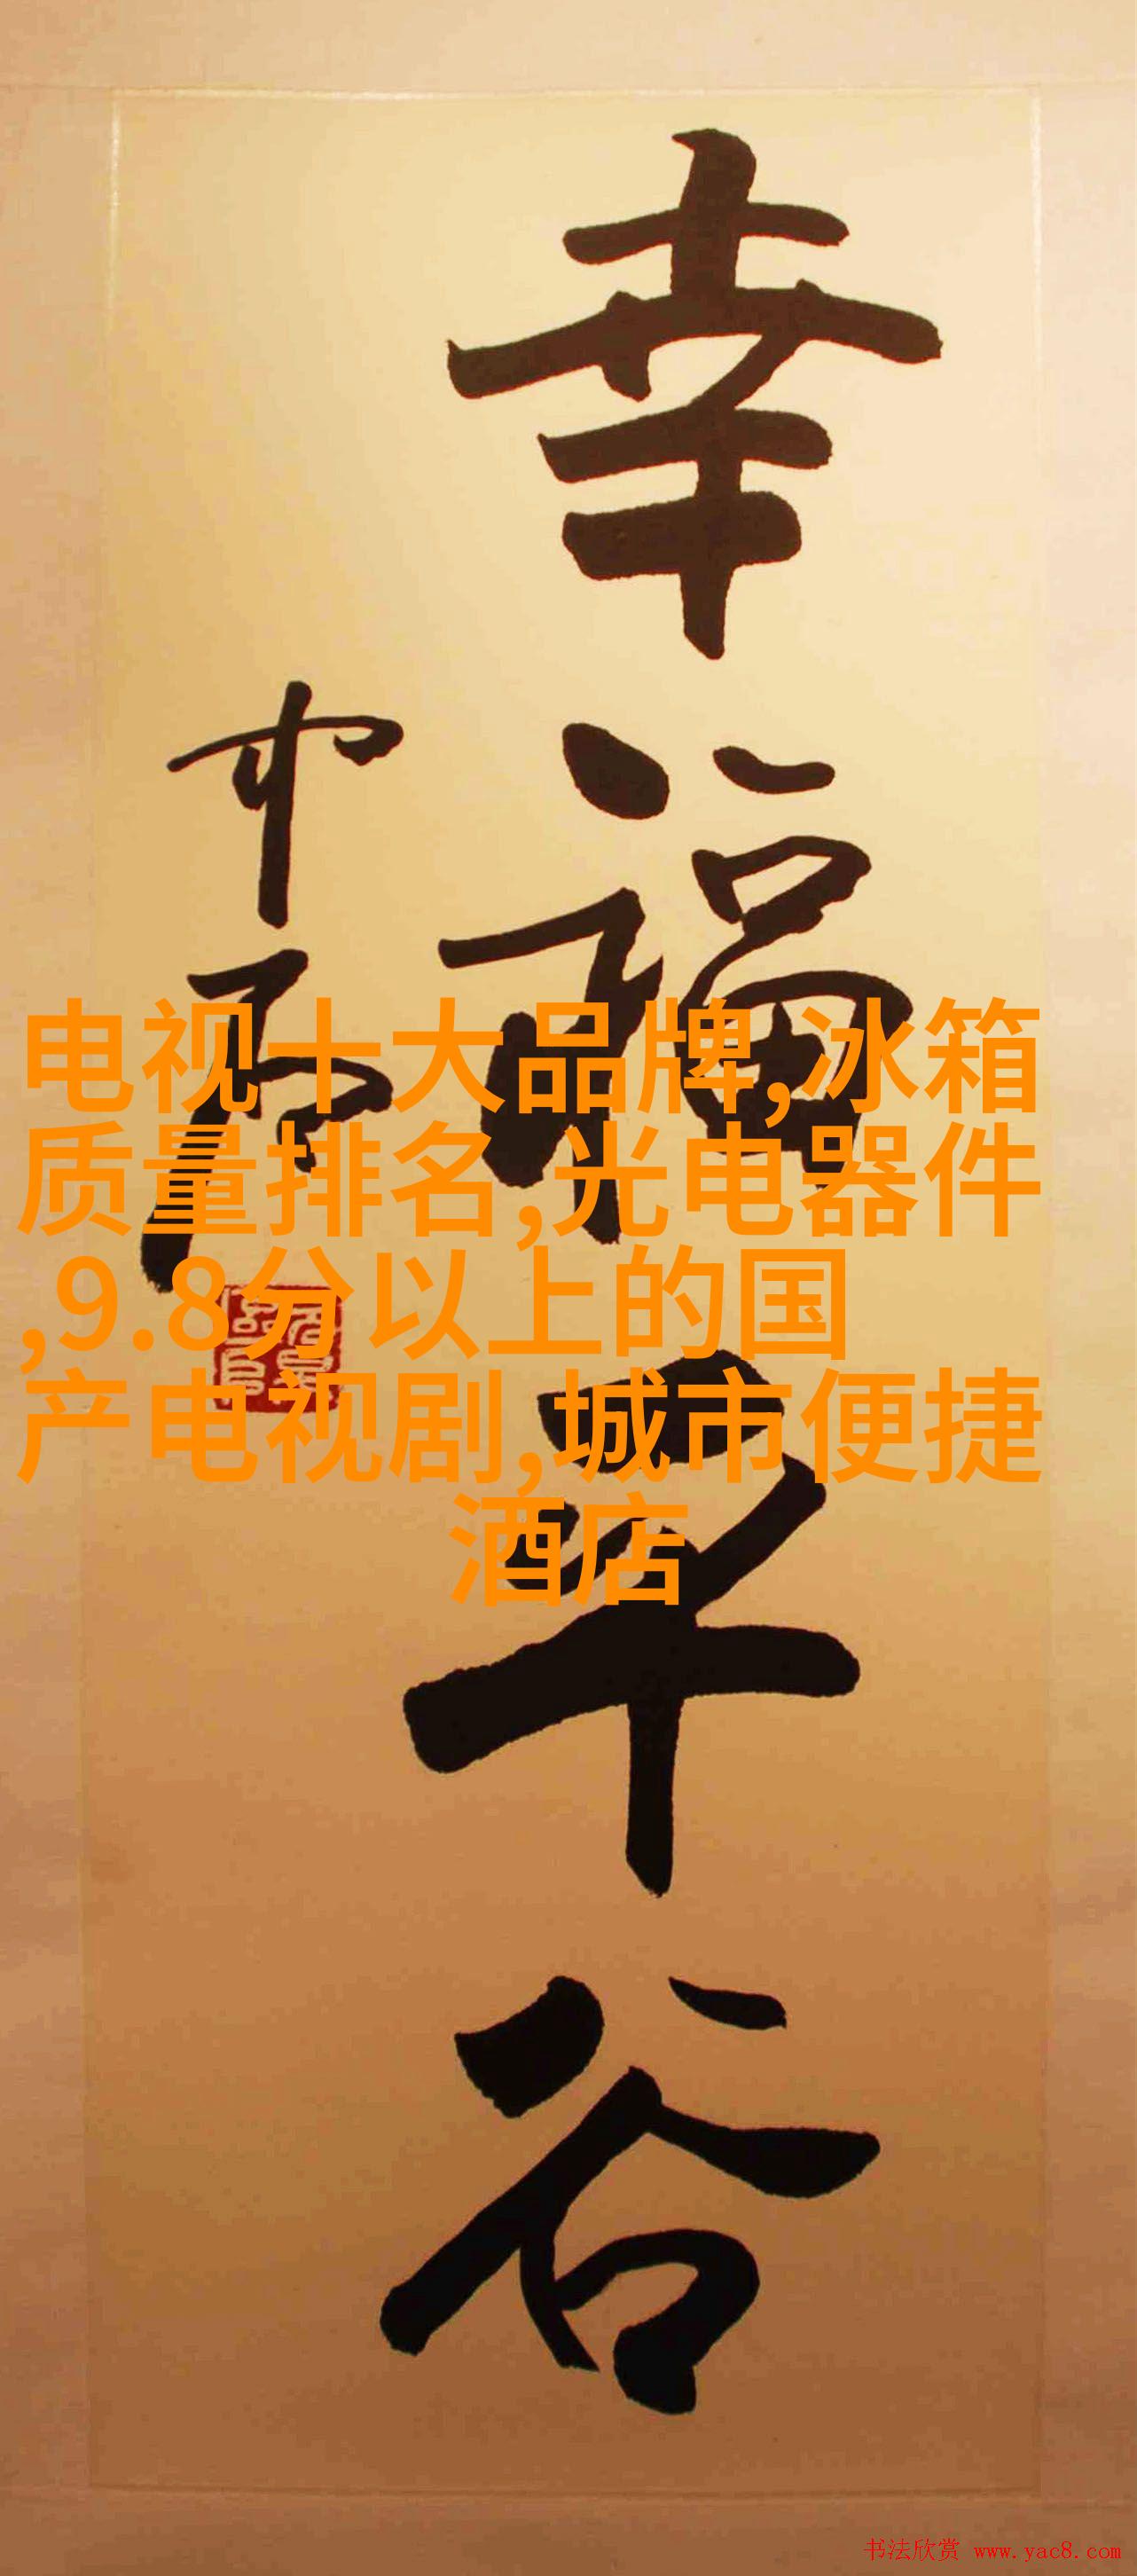 幸福平谷
电视十大品牌,冰箱
质量排名,光电器件
,9.8分以上的国
产电视剧,城市便捷
酒店
书法欣赏 www.yac8.com